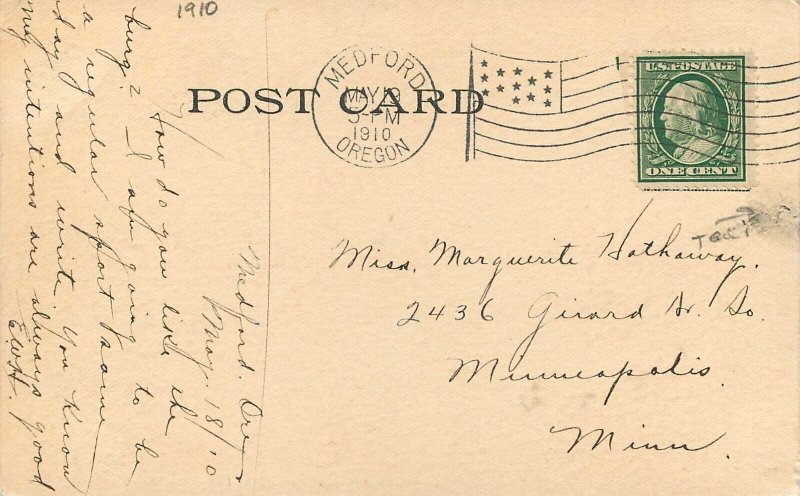 1910
POST CARD
MEDFORD
MAY 19
5-PM
1910
OREGON
U.S. POSTAGE
ONE CENT
Miss. Marguerite Hathaway.
2436 Girard Av. So.
Minneapolis.
Minn.
Medford. Oreg
May. 18/10
How do you like the
burg? I am going to be
a regular sport some
day and write. You know
my intentions are always good
E.W.H.